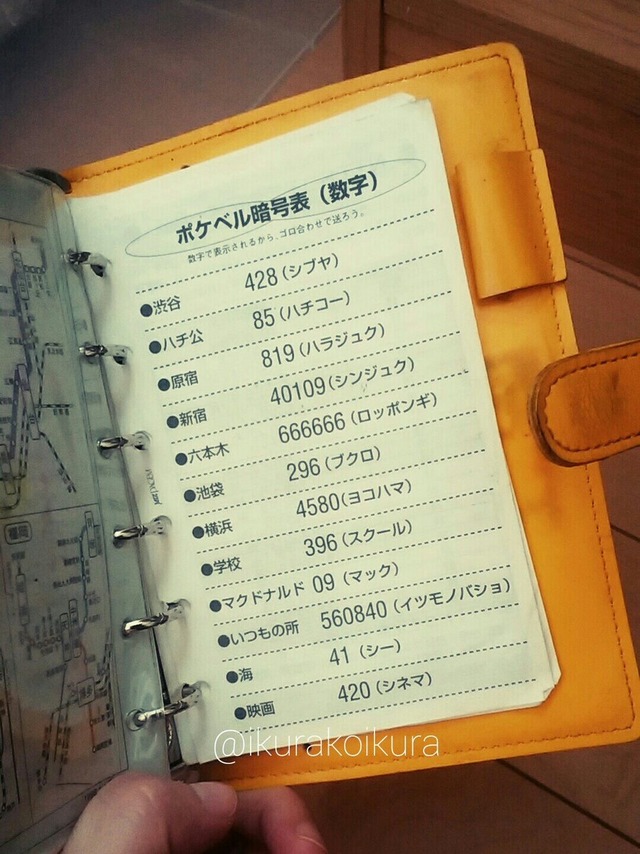 ポケベル暗号表（数字）
数字で表示されるから、ゴロ合わせで送ろう。
●渋谷 428（シブヤ）
●ハチ公 85（ハチコー）
●原宿 819（ハラジュク）
●新宿 40109（シンジュク）
●六本木 666666（ロッポンギ）
●池袋 296（ブクロ）
●横浜 4580（ヨコハマ）
●学校 396（スクール）
●マクドナルド 09（マック）
●いつもの所 560840（イツモノバショ）
●海 41（シー）
●映画 420（シネマ）
@ikurakoikura
福岡